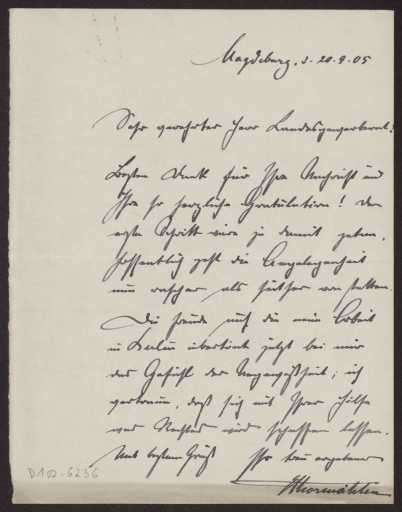 Magdeburg, d. 20.9.05
Sehr geehrter Herr Landesgewerberat!
Besten Dank für Ihre Nachricht und
Ihre so herzliche Gratulation! Der
erste Schritt wäre ja damit getan.
Hoffentlich geht die Angelegenheit
nun rascher als seither von statten.
Die Freude auf die neue Arbeit
in Berlin übertönt jetzt bei mir
das Gefühl der Ungewißheit; ich
vertraue, daß sich mit Ihrer Hilfe
was Rechtes wird schaffen lassen.
Mit bestem Gruß Ihr treu ergebener
Thormählen
D 102-6236